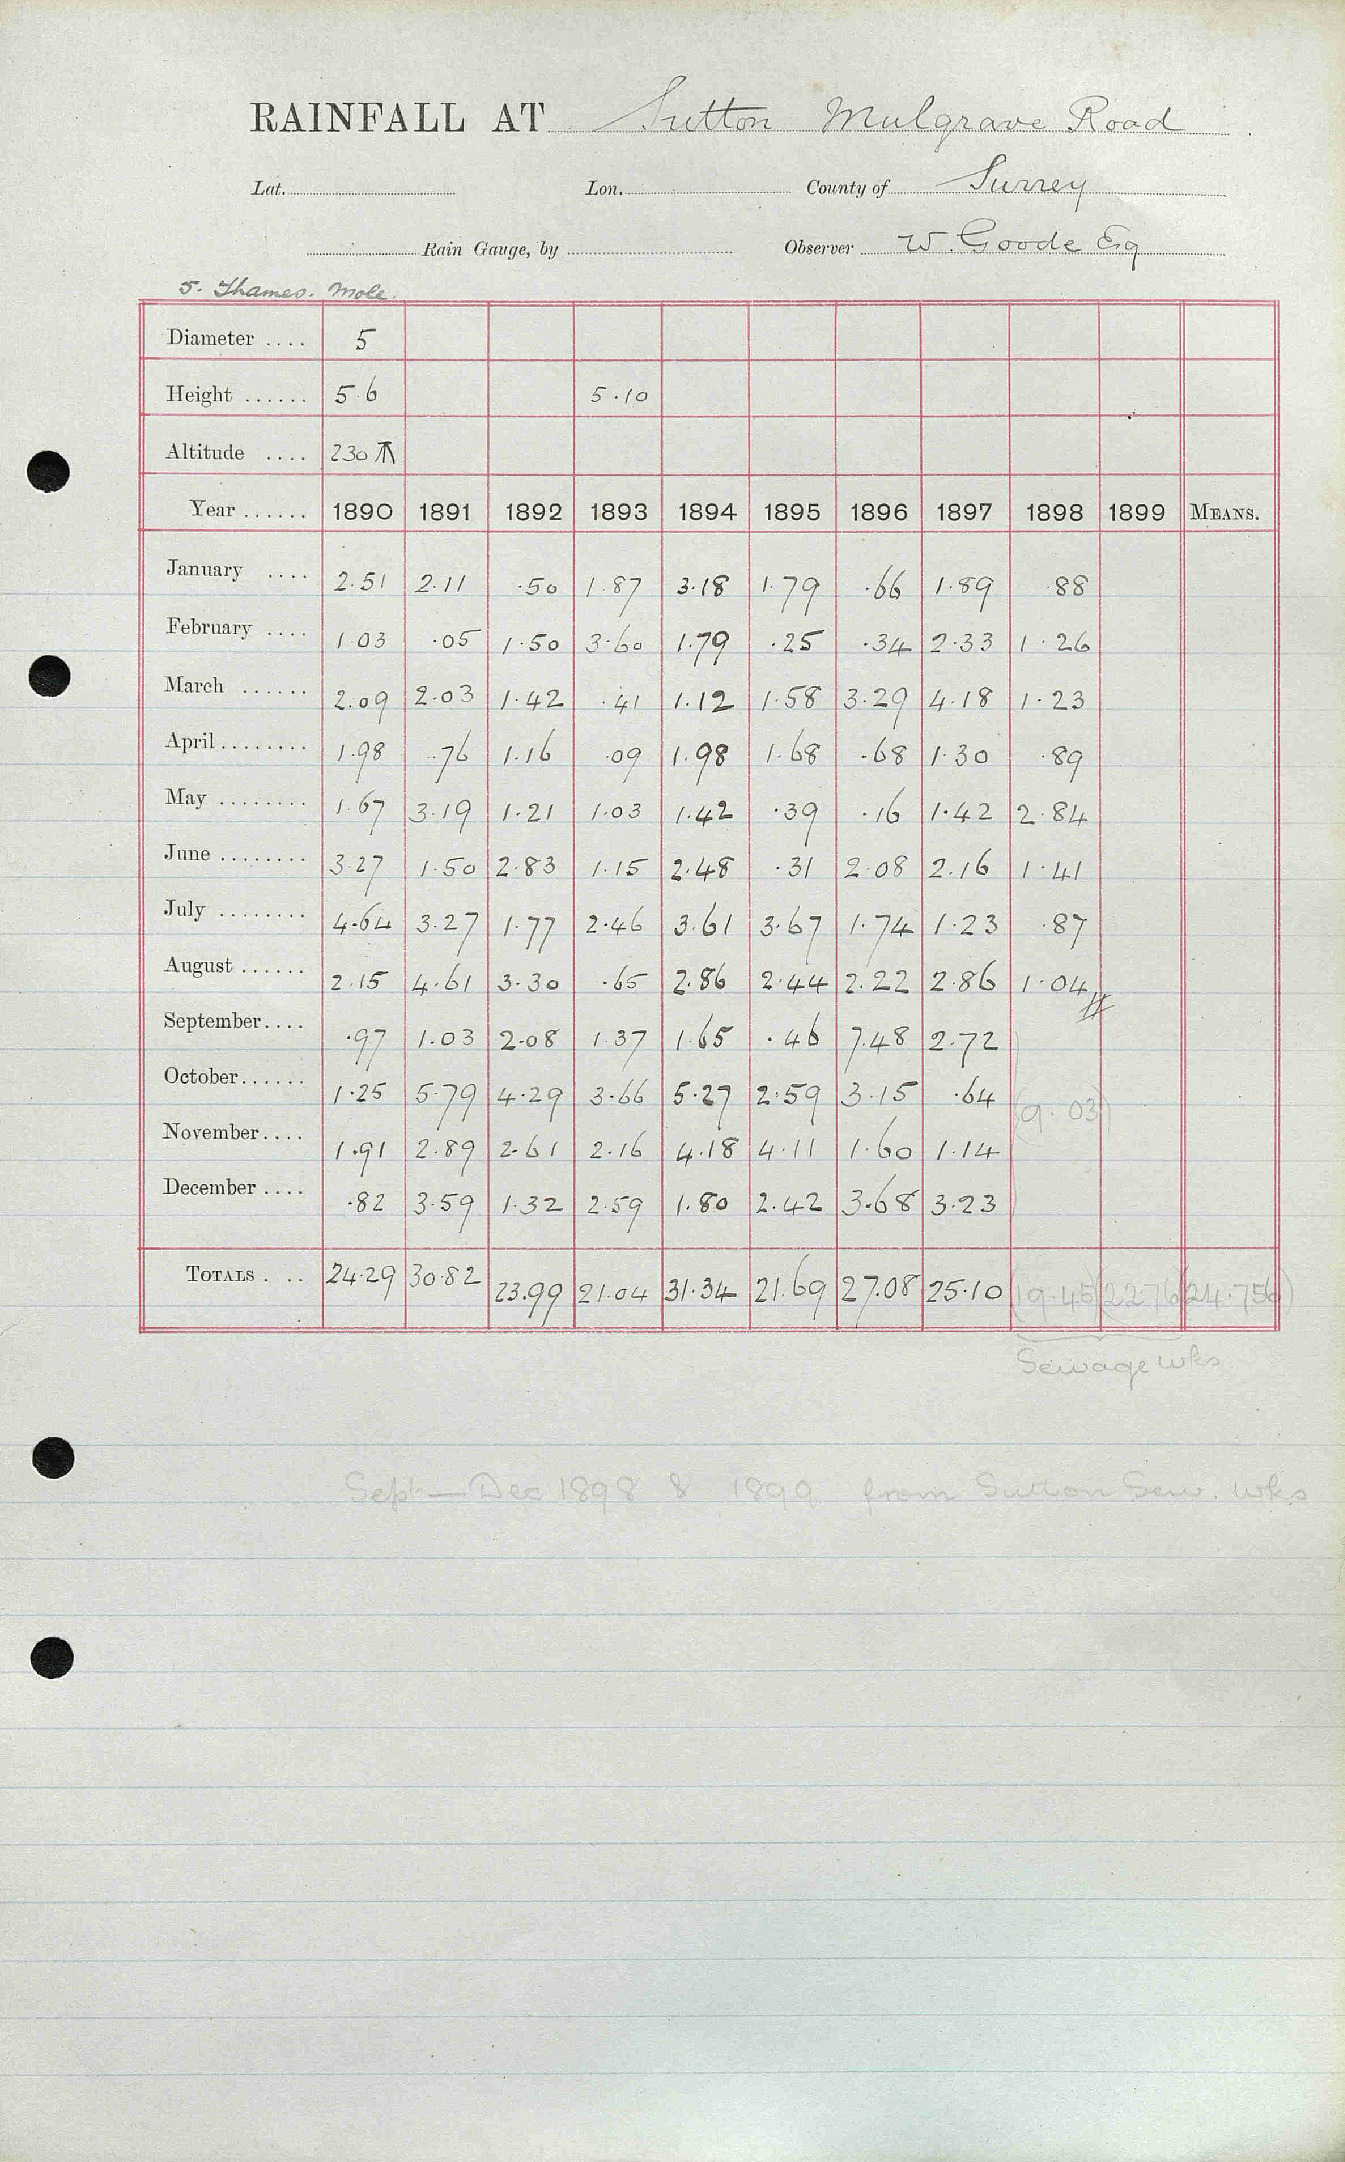 RAINFALL AT Sutton Mulgrave Road
Lat. Lon. County of Surrey
Rain Gauge, by Observer W. Goode Esq
5. Thames. Mole.
Diameter .... 5
Height ...... 5.6 5.10
Altitude .... 230
Year ...... 1890 1891 1892 1893 1894 1895 1896 1897 1898 1899 MEANS.
January .... 2.51 2.11 .50 1.87 3.18 1.79 .66 1.89 .88
February .... 1.03 .05 1.50 3.60 1.79 .25 .34 2.33 1.26
March ...... 2.09 2.03 1.42 .41 1.12 1.58 3.29 4.18 1.23
April ........ 1.98 .76 1.16 .09 1.98 1.68 .68 1.30 .89
May ........ 1.67 3.19 1.21 1.03 1.42 .39 .16 1.42 2.84
June ........ 3.27 1.50 2.83 1.15 2.48 .31 2.08 2.16 1.41
July ........ 4.64 3.27 1.77 2.46 3.61 3.67 1.74 1.23 .87
August ...... 2.15 4.61 3.30 .65 2.86 2.44 2.22 2.86 1.04
September.... .97 1.03 2.08 1.37 1.65 .46 7.48 2.72
October...... 1.25 5.79 4.29 3.66 5.27 2.59 3.15 .64 (9.03)
November.... 1.91 2.89 2.61 2.16 4.18 4.11 1.60 1.14
December .... .82 3.59 1.32 2.59 1.80 2.42 3.68 3.23
TOTALS . .. 24.29 30.82 23.99 21.04 31.34 21.69 27.08 25.10 (19.45) (22.76) (24.756)
Sewage wks
Sept — Dec 1898 & 1899 from Sutton Sew. wks